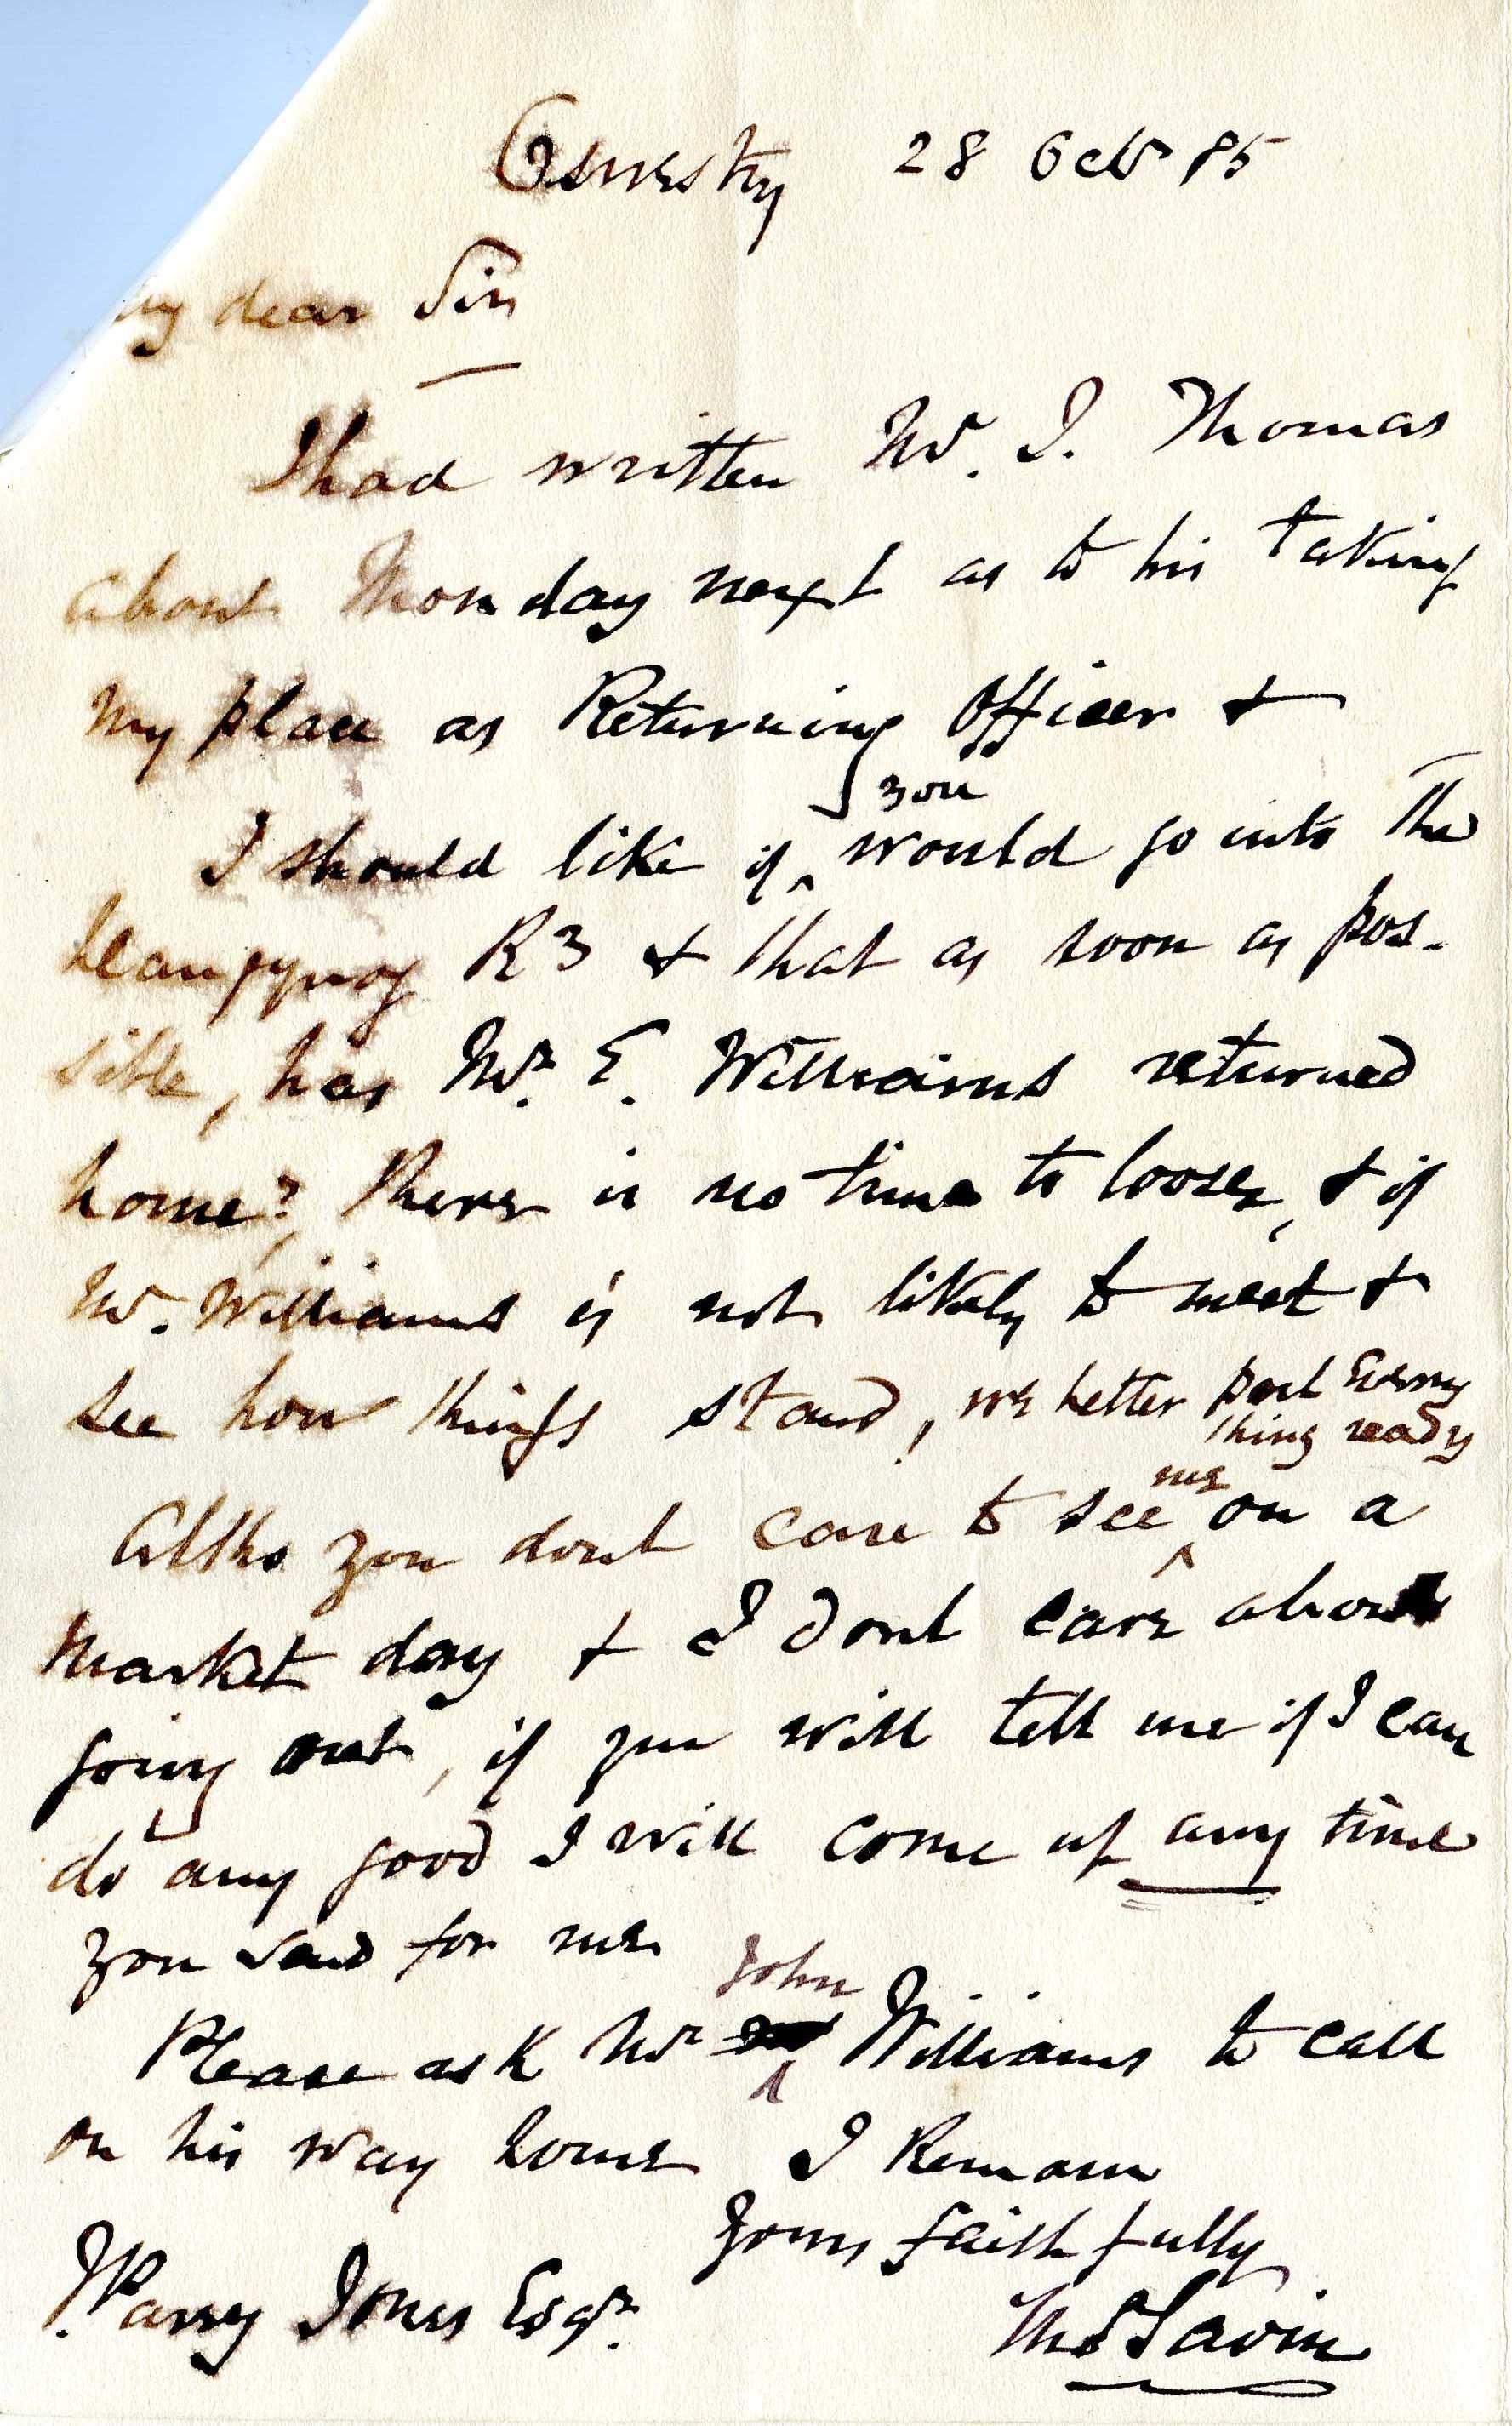 Oswestry 28 Octr 85
My dear Sir
I had written Mr. I. Thomas
about Monday next as to his taking
my place as Returning Officer &
I should like if you would go into the
Llangynog R3 & that as soon as pos-
sible, has Mr. E. Williams returned
home? There is no time to loose, & if
Mr. Williams is not likely to meet &
see how things stand, we better get Every
thing ready
Altho you dont care to see me on a
Market day & I dont care about
going out, if you will tell me if I can
do any good I will come up any time
you send for me
Please ask Mr John Williams to call
on his way home I Remain
Yours faithfully
Parry Jones Esqr. Thos Savin